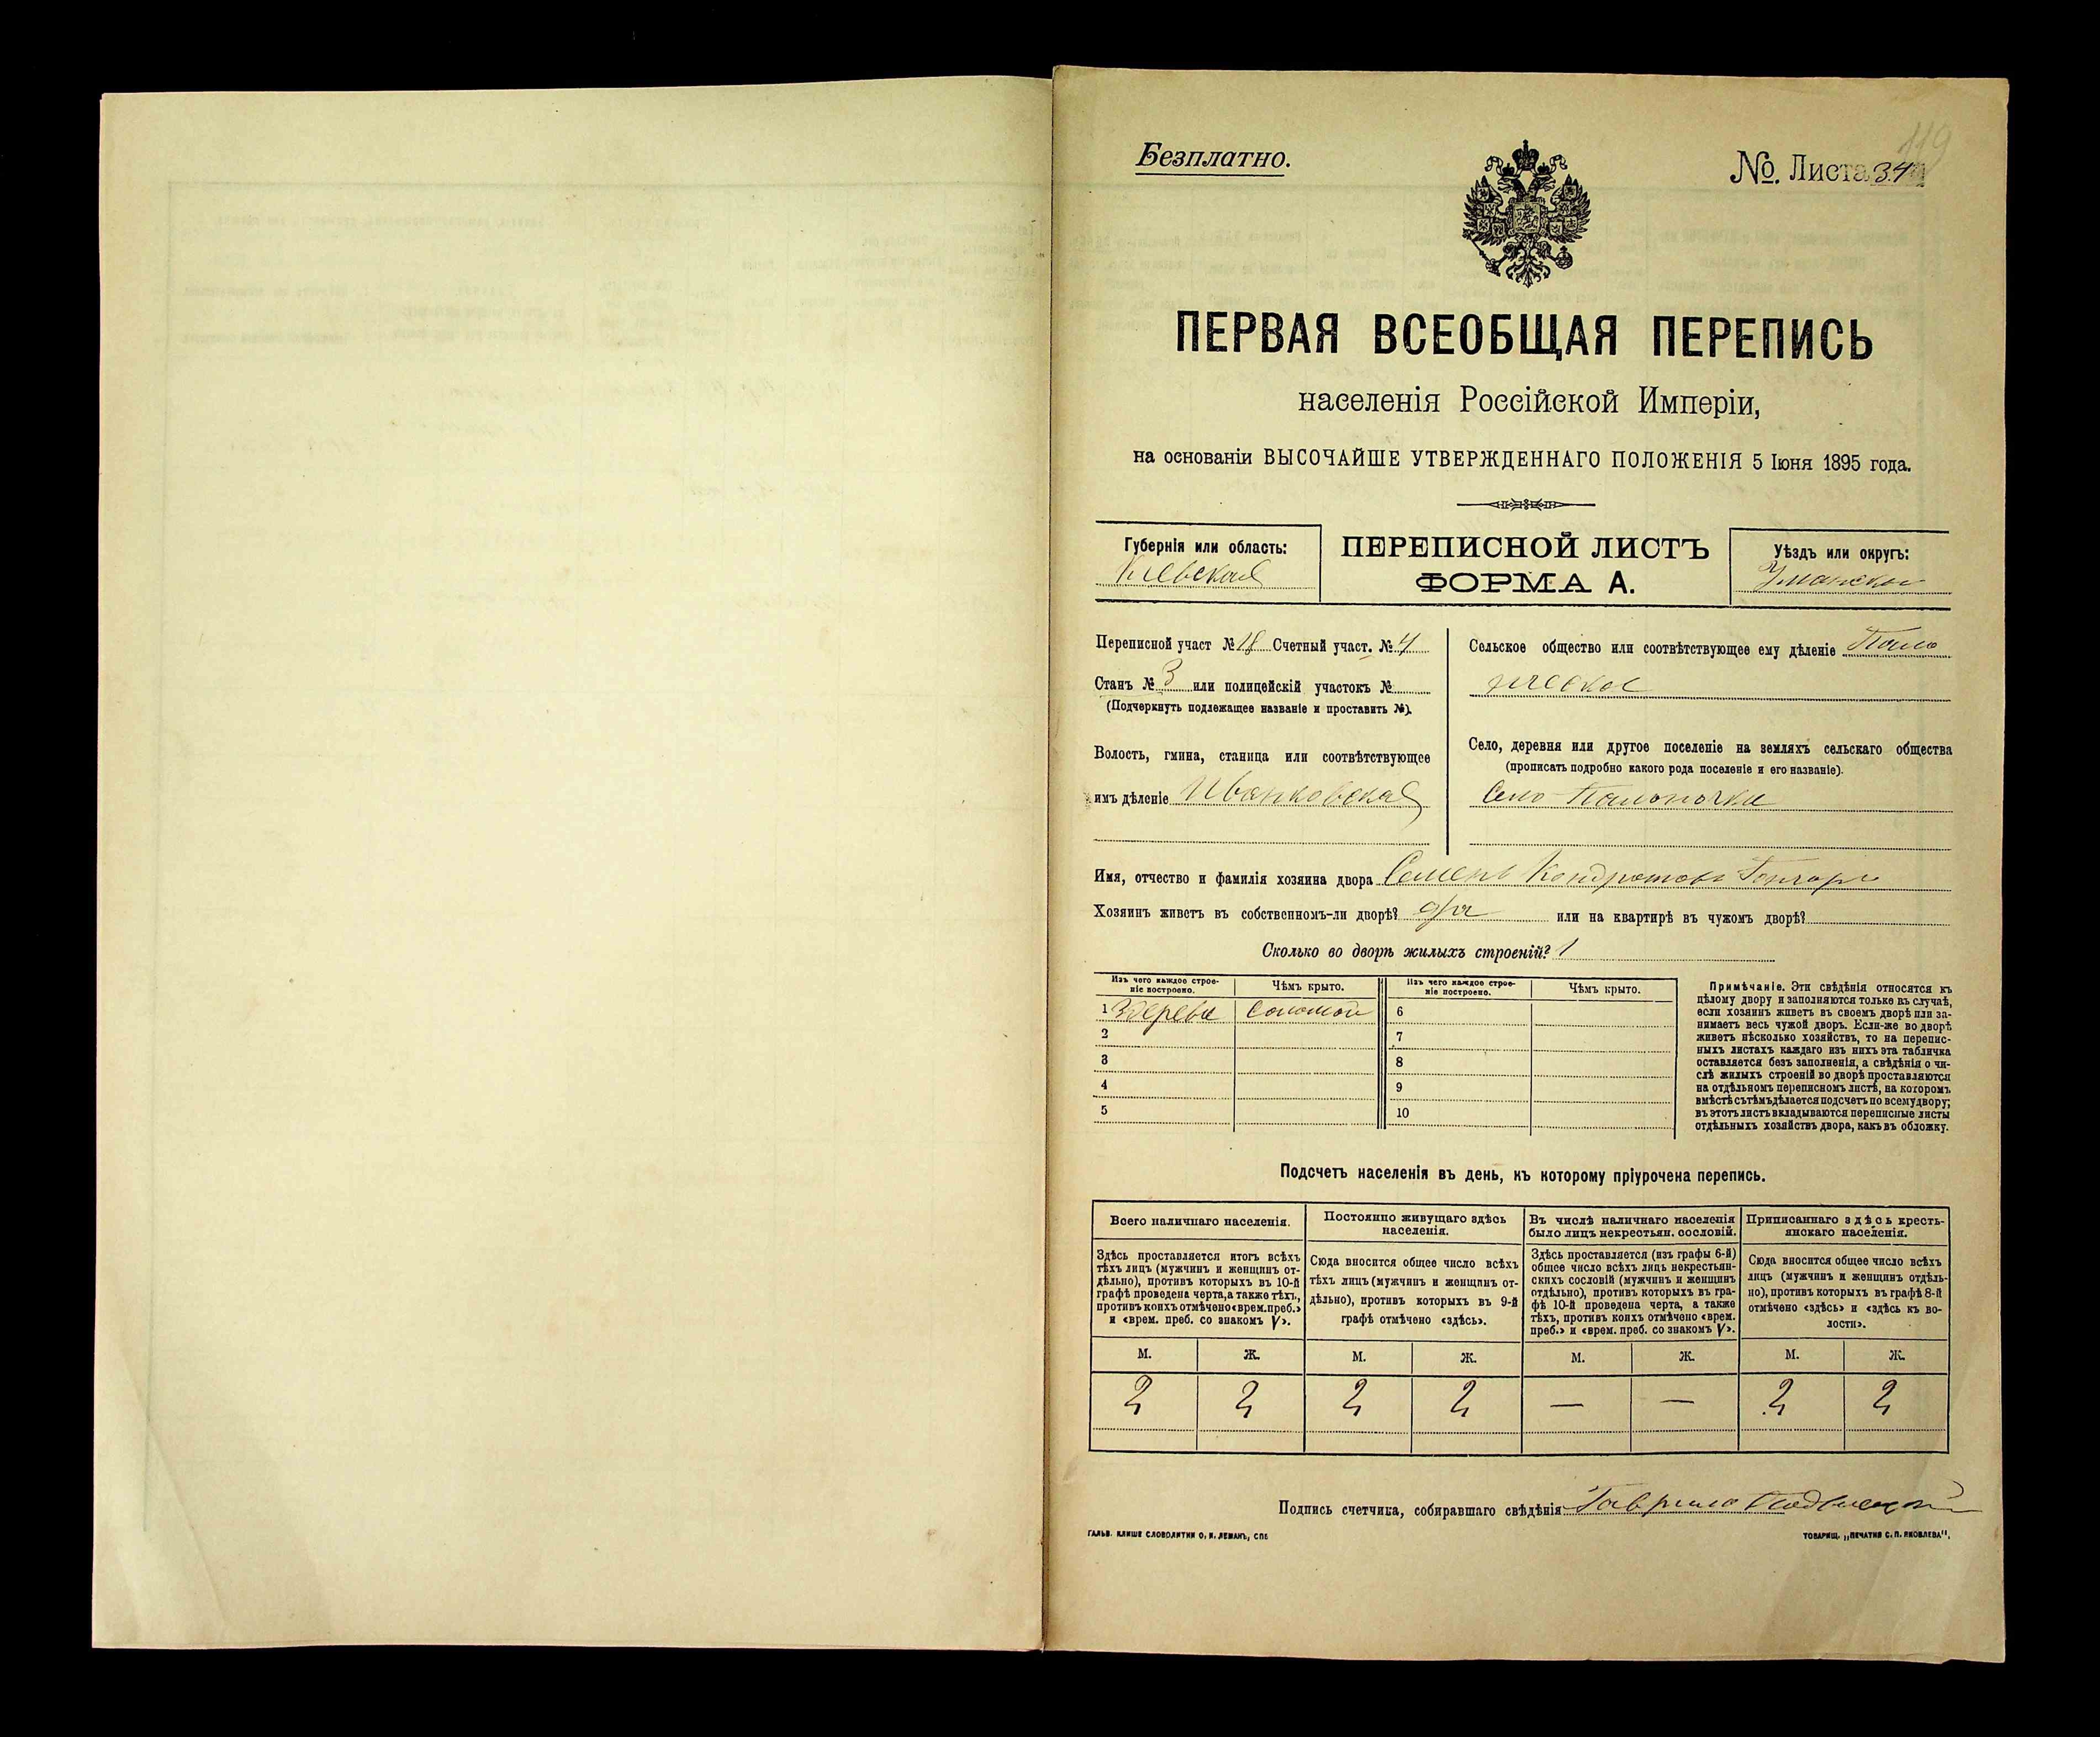 119
Безплатно.
№ Листа 34
ПЕРВАЯ ВСЕОБЩАЯ ПЕРЕПИСЬ
населенія Россійской Имперіи,
на основаніи ВЫСОЧАЙШЕ УТВЕРЖДЕННАГО ПОЛОЖЕНІЯ 5 Іюня 1895 года.
Губернія или область:
Кіевская
ПЕРЕПИСНОЙ ЛИСТЪ
ФОРМА А.
Уѣздъ или округъ:
Уманскій
Переписной участ № 18 Счетный участ. № 4
Станъ № 3 или полицейскій участокъ №
(Подчеркнуть подлежащее названіе и проставить №).
Волость, гмина, станица или соотвѣтствующее
имъ дѣленіе Иваньковская
Сельское общество или соотвѣтствующее ему дѣленіе
Село, деревня или другое поселеніе на земляхъ сельскаго общества
(прописать подробно какого рода поселеніе и его названіе).
Село
Имя, отчество и фамилія хозяина двора Семенъ Кондратовъ Гончаръ
Хозяинъ живетъ въ собственномъ-ли дворѣ? да или на квартирѣ въ чужомъ дворѣ?
Сколько во дворѣ жилыхъ строеній? 1
Изъ чего каждое строе-
ніе построено.
Чѣмъ крыто.
Изъ чего каждое строе-
ніе построено.
Чѣмъ крыто.
1 Здерева соломой
2
3
4
5
6
7
8
9
10
Примѣчаніе. Эти свѣдѣнія относятся къ
цѣлому двору и заполняются только въ случаѣ,
если хозяинъ живетъ въ своемъ дворѣ или за-
нимаетъ весь чужой дворъ. Если-же во дворѣ
живетъ нѣсколько хозяйствъ, то на перепис-
ныхъ листахъ каждаго изъ нихъ эта табличка
оставляется безъ заполненія, а свѣдѣнія о чи-
слѣ жилыхъ строеній во дворѣ проставляются
на отдѣльномъ переписномъ листѣ, на которомъ
вмѣстѣ съ тѣмъ дѣлается подсчетъ по всему двору;
въ этотъ листъ вкладываются переписные листы
отдѣльныхъ хозяйствъ двора, какъ въ обложку.
Подсчетъ населенія въ день, къ которому пріурочена перепись.
Всего наличнаго населенія.
Здѣсь проставляется итогъ всѣхъ
тѣхъ лицъ (мужчинъ и женщинъ от-
дѣльно), противъ которыхъ въ 10-й
графѣ проведена черта, а также тѣхъ,
противъ коихъ отмѣчено «врем. преб.»
и «врем. преб. со знакомъ V».
Постоянно живущаго здѣсь
населенія.
Сюда вносится общее число всѣхъ
тѣхъ лицъ (мужчинъ и женщинъ от-
дѣльно), противъ которыхъ въ 9-й
графѣ отмѣчено «здѣсь».
Въ числѣ наличнаго населенія
было лицъ некрестьян. сословій.
Здѣсь проставляется (изъ графы 6-й)
общее число всѣхъ лицъ некрестьян-
скихъ сословій (мужчинъ и женщинъ
отдѣльно), противъ которыхъ въ гра-
фѣ 10-й проведена черта, а также
тѣхъ, противъ коихъ отмѣчено «врем.
преб.» и «врем. преб. со знакомъ V».
Приписаннаго здѣсь кресть-
янскаго населенія.
Сюда вносится общее число всѣхъ
лицъ (мужчинъ и женщинъ отдѣль-
но), противъ которыхъ въ графѣ 8-й
отмѣчено «здѣсь» и «здѣсь къ во-
лости».
М. Ж. М. Ж. М. Ж. М. Ж.
2 2 2 2 — — 2 2
Подпись счетчика, собиравшаго свѣдѣнія Гаврило
ГАЛЬВ. КЛИШЕ СЛОВОЛИТНИ О. И. ЛЕМАНЪ, СПБ
ТОВАРИЩ. „ПЕЧАТНЯ С. П. ЯКОВЛЕВА“.